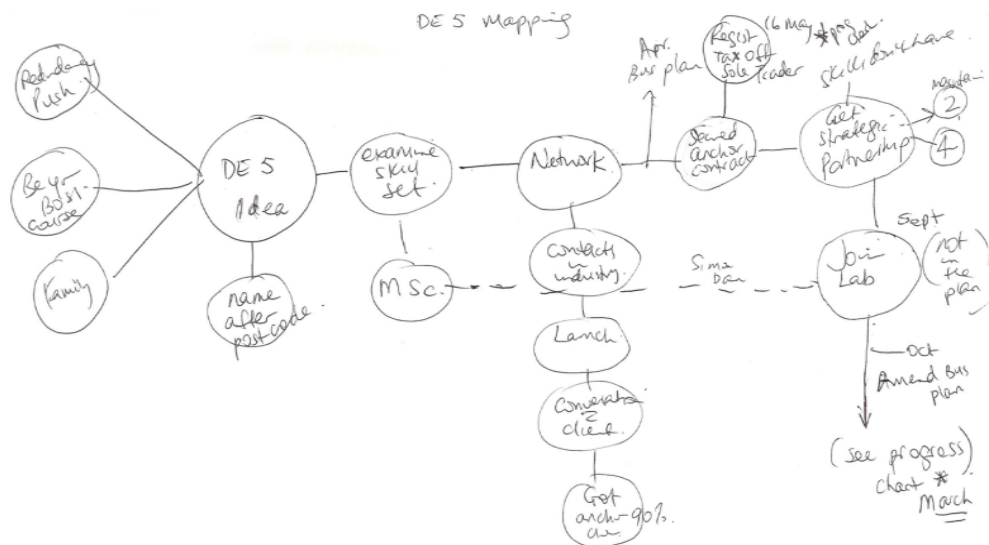 DE 5 Mapping
Redundancy
Push
Be yr
Boss-
course
Family
DE 5
Idea
name
after
postcode.
examine
skill
set.
MSc.
Network
Contacts
in
industry.
Launch
Conversation
client.
Got
anchor 90%.
Apr.
Bus plan
Regist
Tax off
Sole Trader
16 May
Secured
anchor
contract
skills don't have
Get
strategic
Partnership
2
4
Sept
Join
Lab
(not
in
the
plan)
Oct
Amend Bus
plan
(see progress)
chart *
March